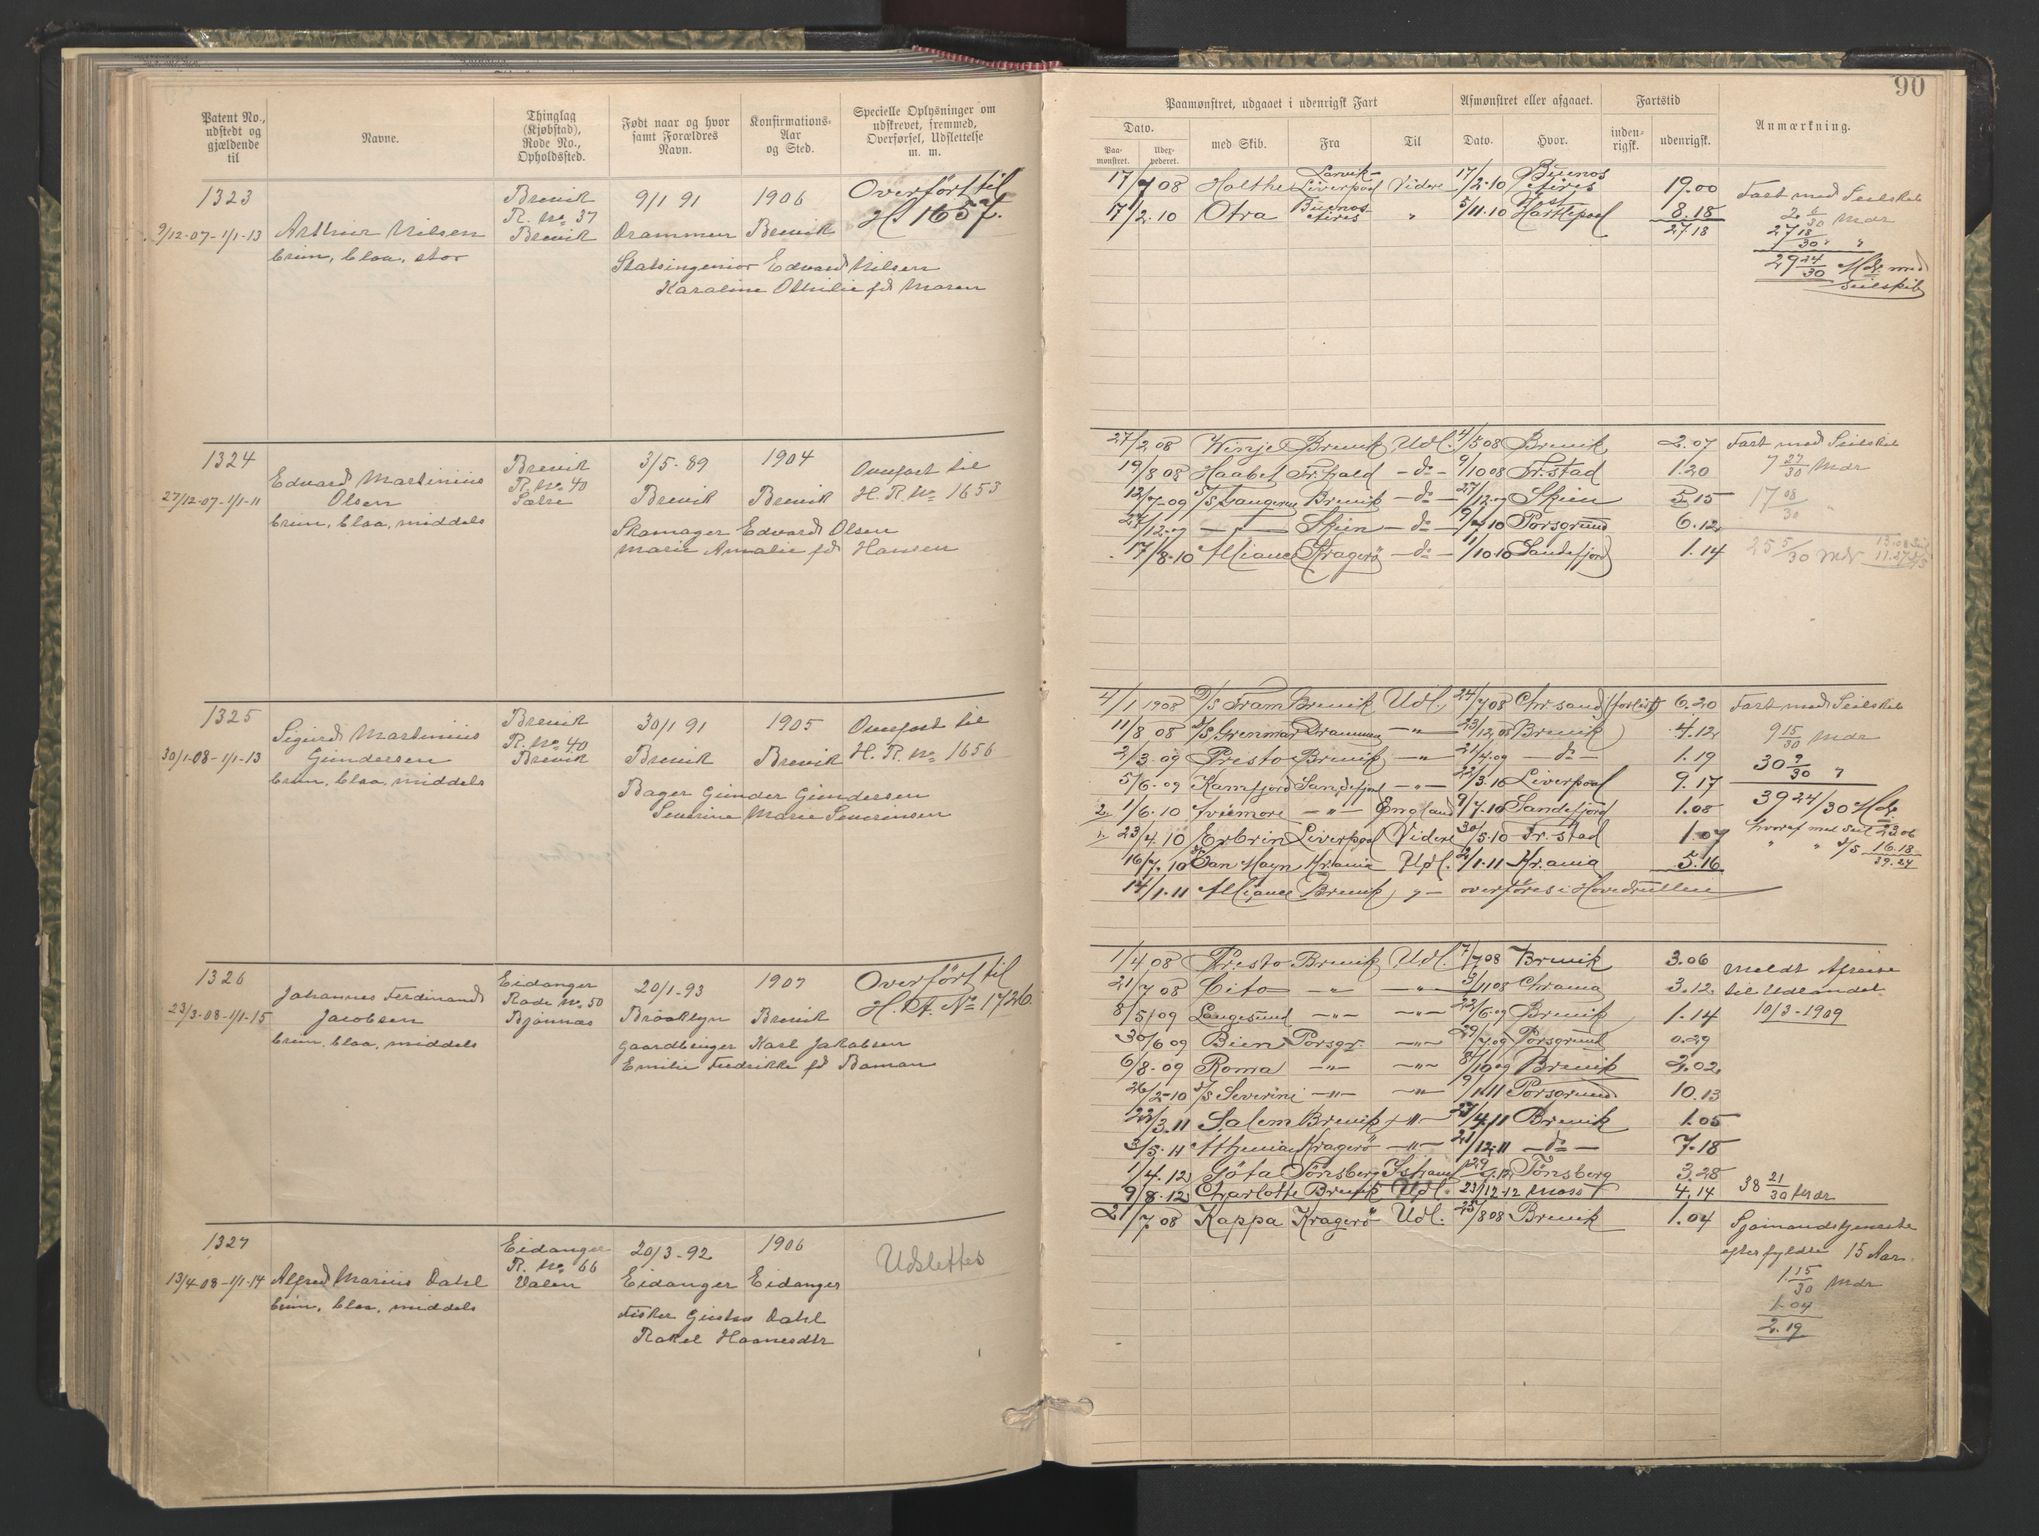 Patent No., udstedt og gjældende til
Navne.
Thinglag (Kjøbstad), Rode No., Opholdssted.
Født naar og hvor samt Forældres Navn.
Konfirmations-Aar og Sted.
Specielle Oplysninger om udskrevet, fremmed, Overførsel, Udslettelse m. m.
1323
9/12-07-1/1-13
Arthur Nilsen
brun, blaa, stor
Brevik
R. No 37
Brevik
9/1 91
Drammen
1906
Brevik
Statsingeniør Edvard Nilsen
Karoline Othilie fd Maren
Overført til
H. 1657.
1324
27/12-07-1/1-11
Edvard Martinius
Olsen
brun, blaa, middels
Brevik
R. No 40
3/5-89
Brevik
1904
Brevik
Skomager Edvard Olsen
Marie Amalie fd Hansen
Overført til
H. R. No 1653
1325
30/1-08-1/1-13
Sigurd Martinius
Gundersen
brun, blaa, middels
Brevik
R. No 40
Brevik
30/1 91
Brevik
1905
Brevik
Bager Gunder Gundersen
Severine Marie Severinsen
Overført til
H. R. No 1656
1326
23/3-08-1/1-15
Johannes Ferdinand
Jacobsen
brun, blaa, middels
Eidanger
Rode No 50
Bjønnæs
20/1-93
Brooklyn
1907
Brevik
Gaardbruger Karl Jakobsen
Emilie Fredrikke fd
Overført til
H. R. No 1726.
1327
13/4-08-1/1-14
Alfred Marius Dahl
brun, blaa, middels
Eidanger
R. No 66
Valen
20/3-92
Eidanger
1906
Eidanger
Fisker Gustav Dahl
Rakel Hansdtr
Udslettes
90
Paamønstret, udgaaet i udenrigsk Fart
Afmønstret eller afgaaet.
Fartstid
Anmærkning.
Dato.
Paamønstret.
Udexpederet.
med Skib.
Fra
Til
Dato.
Hvor.
indenrigsk.
udenrigsk.
17/7 08 Holthe Larvik-Liverpool Videre 17/2-10 Buenos Aires 19.00
17/2.10 Otra Buenos Aires " 5/11.10 West Hartlepool 8.18
27.18
Fart med Seilskib
2 6/30 Mdr
27 18/30 "
29 24/30 Mdr med
Seilskib
27/2 08 Vinje Brevik Udl. 4/5 08 Brevik 2.07
19/8 08 Haabet Fr.hald - do - 9/10 08 Fr.stad 1.20
12/7-09 S/S Langesund Brevik - do - 27/12.09 Skien 5.15
27/12.09 - " - Skien - do - 9/7 10 Porsgrund 6.12
17/8-10 Alliance Kragerø - do - 1/10 10 Sandefjord 1.14
Fart med Seilskib
7 27/30 Mdr
17 08/30 "
25 5/30 Mdr
4/1 1908 S/S Fram Brevik Udl. 24/7 08 Chr.sand (forlist) 6.20
11/8 08 S/S Grenmar Drammen - " - 23/12 08 Brevik 4.12
2/3-09 Presto Brevik - " - 21/4-09 - do - 1.19
5/6-09 Kamfjord Sandefjord - " - 22/3.10 Liverpool 9.17
2. 1/6.10 Aviemore - " - England 9/7.10 Sandefjord 1.08
1. 23/4.10 Erbrin Liverpool Videre 30/5.10 Fr.stad 1.07
16/7.10 S/S Jan Mayn Kr.ania Udl. 2/1.11 Kr.ania 5.16
14/1.11 Alliance Brevik " - overføres i Hovedrullen
Fart med Seilskib
9 15/30 Mdr
30 9/30 "
39 24/30 Mdr
hvoraf med Seil 23.06
" " S/S 16.18
39.24
1/4 08 Presto Brevik Udl. 7/7 08 Brevik 3.06
21/7 08 Cito - " - - " - 3/11 08 Chrania 3.12
8/5 09 Langesund - " - - " - 22/6-09 Brevik 1.14
30/6 09 Bien Porsgr. - " - 29/7 09 Porsgrund 0.29
6/8-09 Roma - " - - " - 8/10 09 Brevik 2.02
26/2-10 S/S Severine - " - - " - 9/1 11 Porsgrund 10.13
22/3.11 Salem Brevik - " - 27/4 11 Brevik 1.05
3/5-11 Athenian Kragerø - " - 21/12.11 - do - 7.18
1/4.12 Göta Tønsberg Tønsberg 3.28
9/8.12 Charlotte Brevik Udl. 23/12-12 Moss 4.14
Meldt Afreise
til Udlandet
10/3-1909
38 21/30 Mdr
21/7 08 Kappa Kragerø Udl. 25/8 08 Brevik 1.04
Sjømandstjeneste
efter fyldte 15 Aar.
1 15/30 Mdr
1.04
2.19